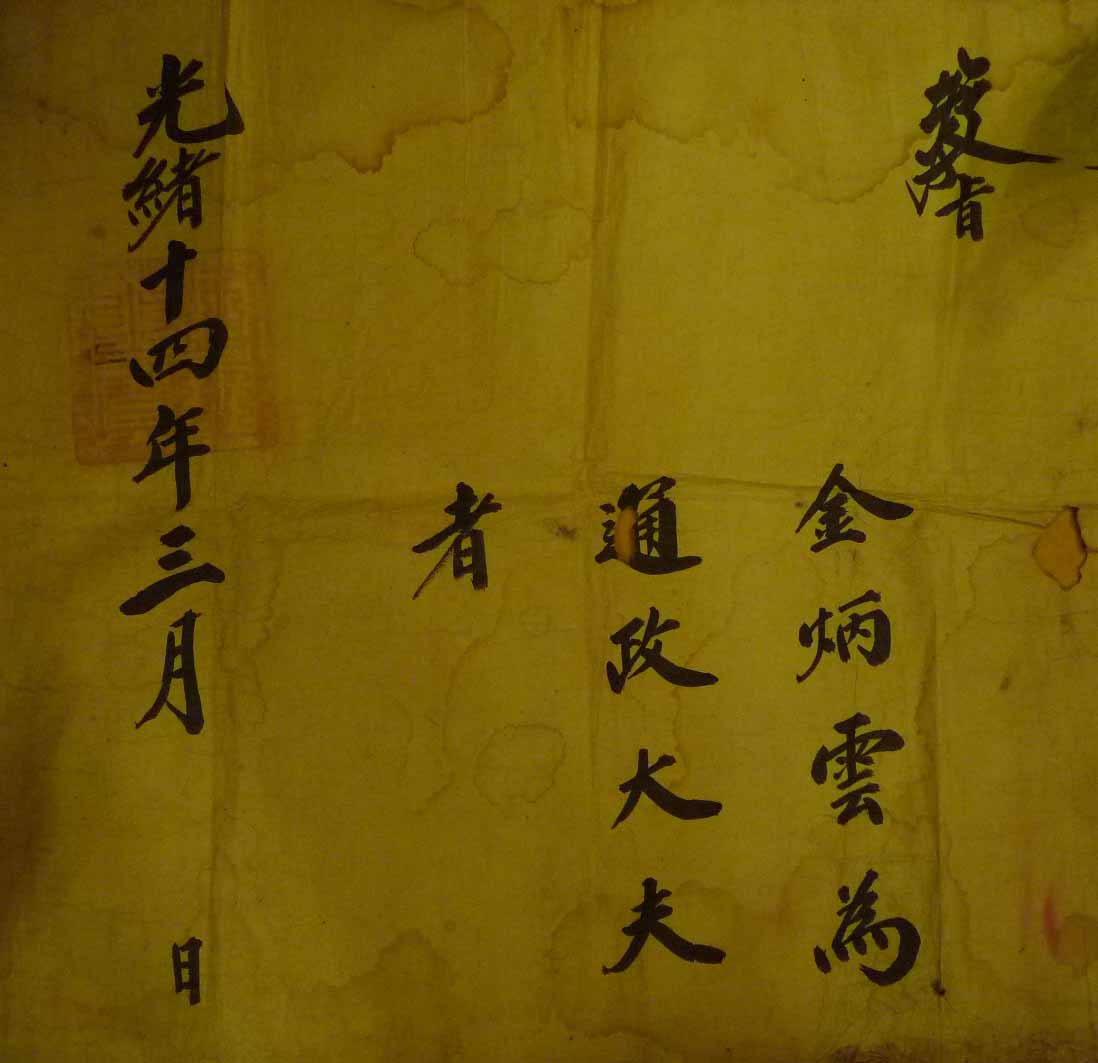 敎旨
金炳雲為
通政大夫
者
光緒十四年三月 日